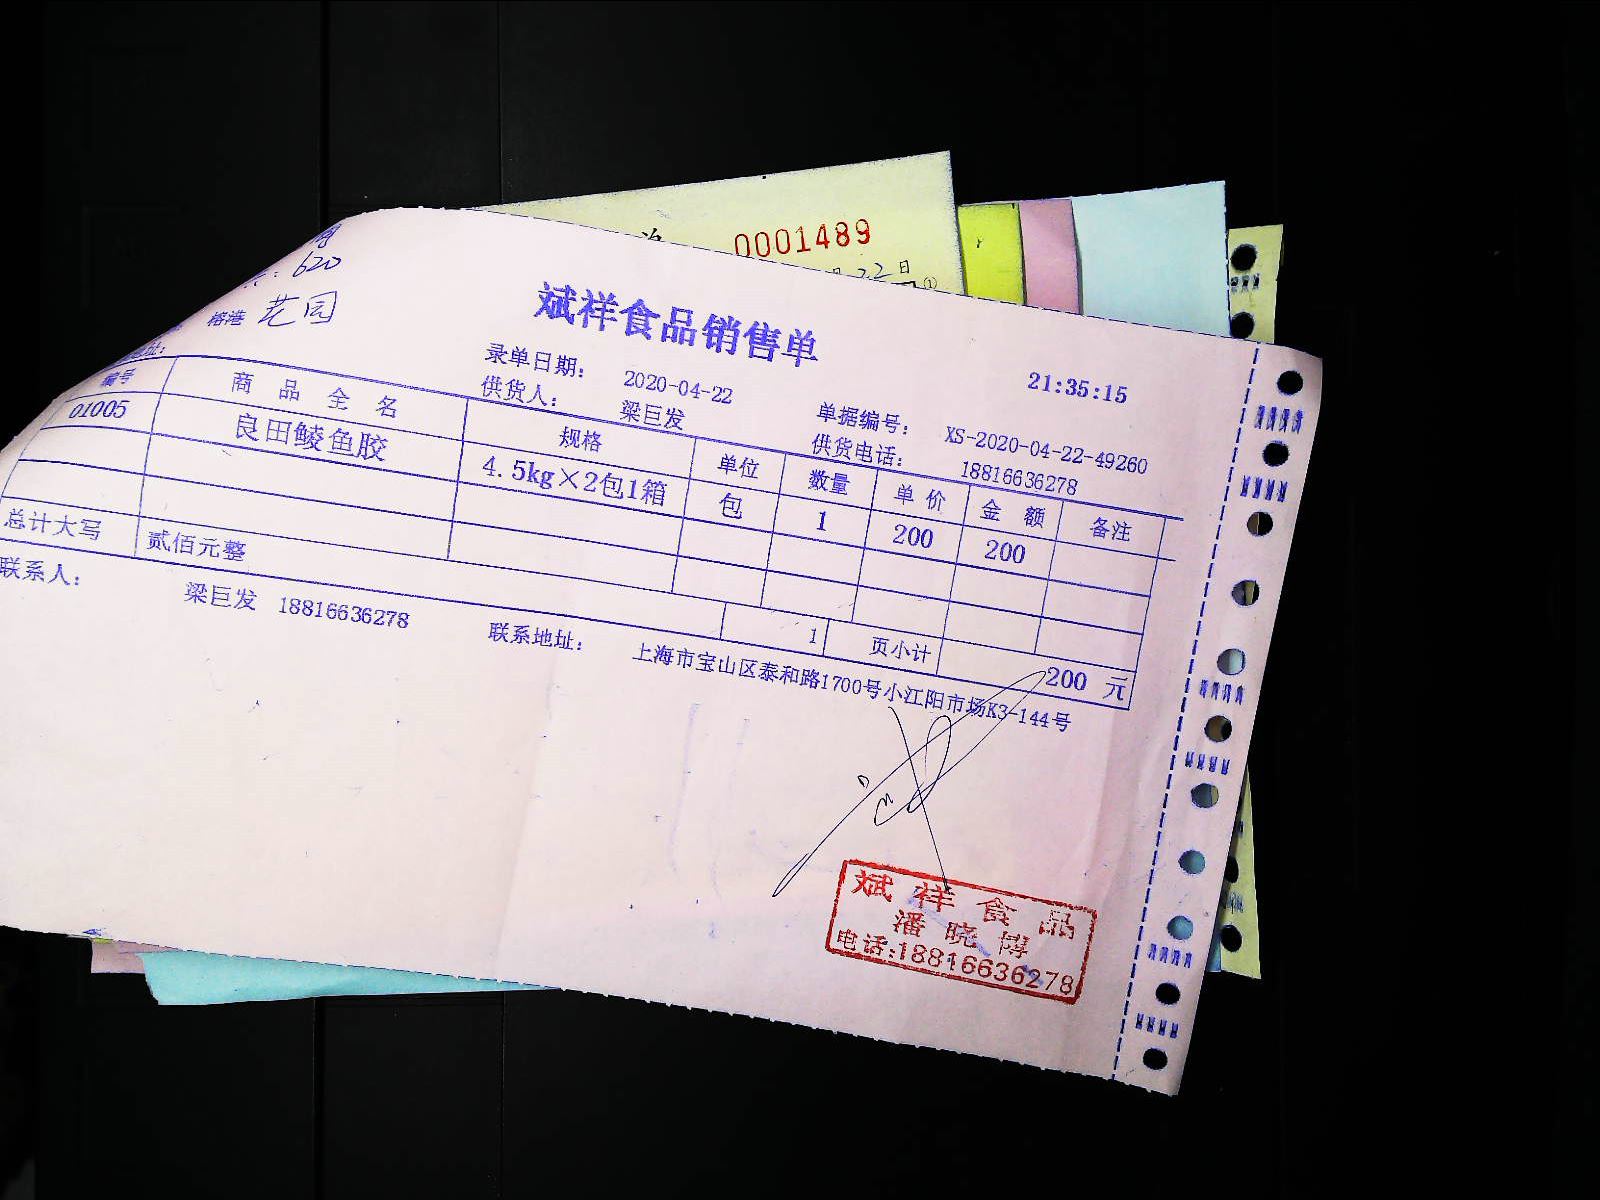 0001489
22日
①
620
榕港 艺园
斌祥食品销售单
21:35:15
录单日期： 2020-04-22 单据编号： XS-2020-04-22-49260
供货人： 梁巨发 供货电话： 18816636278
地址：
编号 商品全名 规格 单位 数量 单价 金额 备注
01005 良田鲮鱼胶 4.5kg×2包1箱 包 1 200 200
总计大写 贰佰元整 1 页小计 200 元
联系人： 梁巨发 18816636278 联系地址： 上海市宝山区泰和路1700号小江阳市场K3-144号
斌祥食品
潘晓博
电话:18816636278